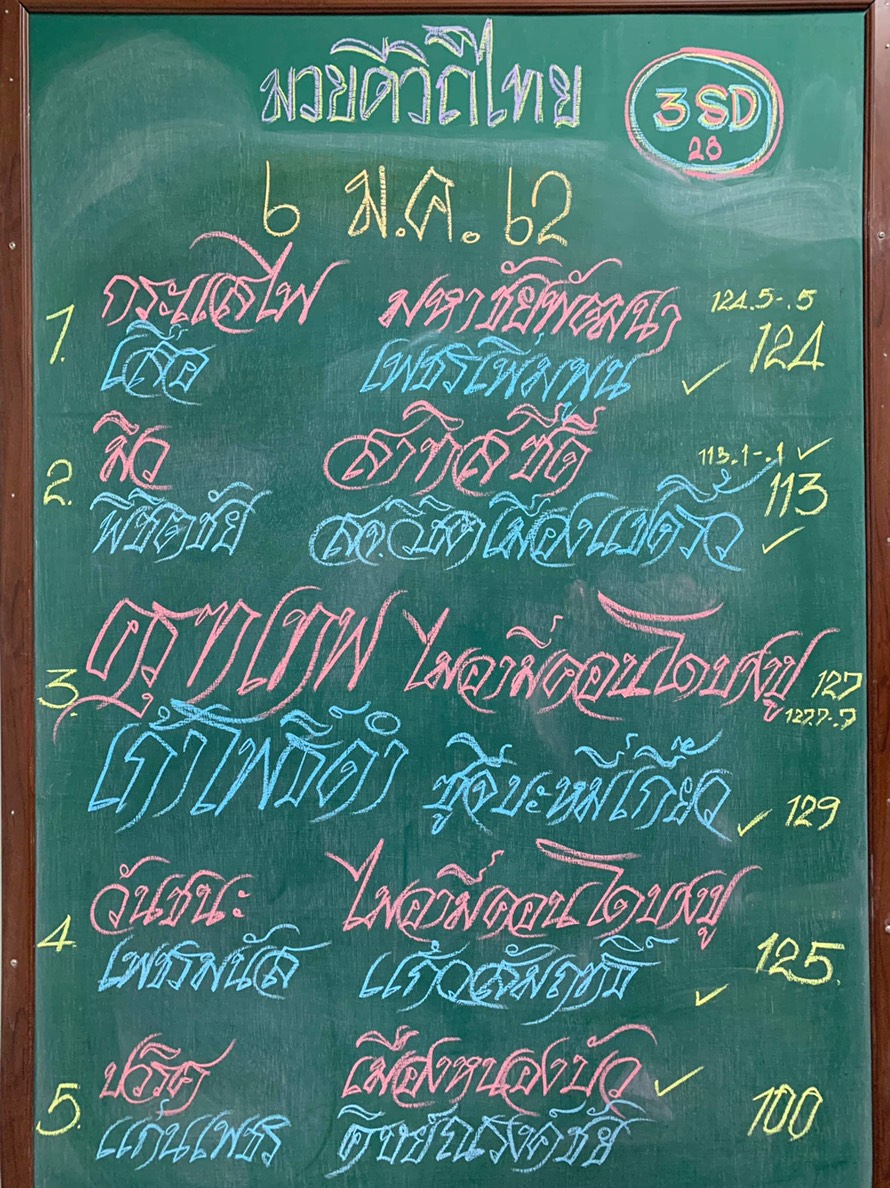 มวยดีวิถีไทย
3SD
28
๖ ม.ค. ๖๒
1. กระแสไฟ มหาชัยพัฒนา 124.5-.5
เสือ เพชรเพิ่มพูน ✓ 124
2. มิว สาทิสซีดี 113.1-.1 ✓
พิชิตชัย สจ.วิชิตเมืองแปดริ้ว ✓ 113
3. ครุฑเทพ ไมอามี่คอนโดบางปู 127
127.7-.7
เก้าโพธิ์ดำ ซูจีบะหมี่เกี๊ยว ✓ 129
4. วันชนะ ไมอามี่คอนโดบางปู
เพชรมนัส แก้วสัมฤทธิ์ ✓ 125
5. ปวริศ เมืองหนองบัว ✓
แก่นเพชร ศิษย์ณรงค์ชัย 100